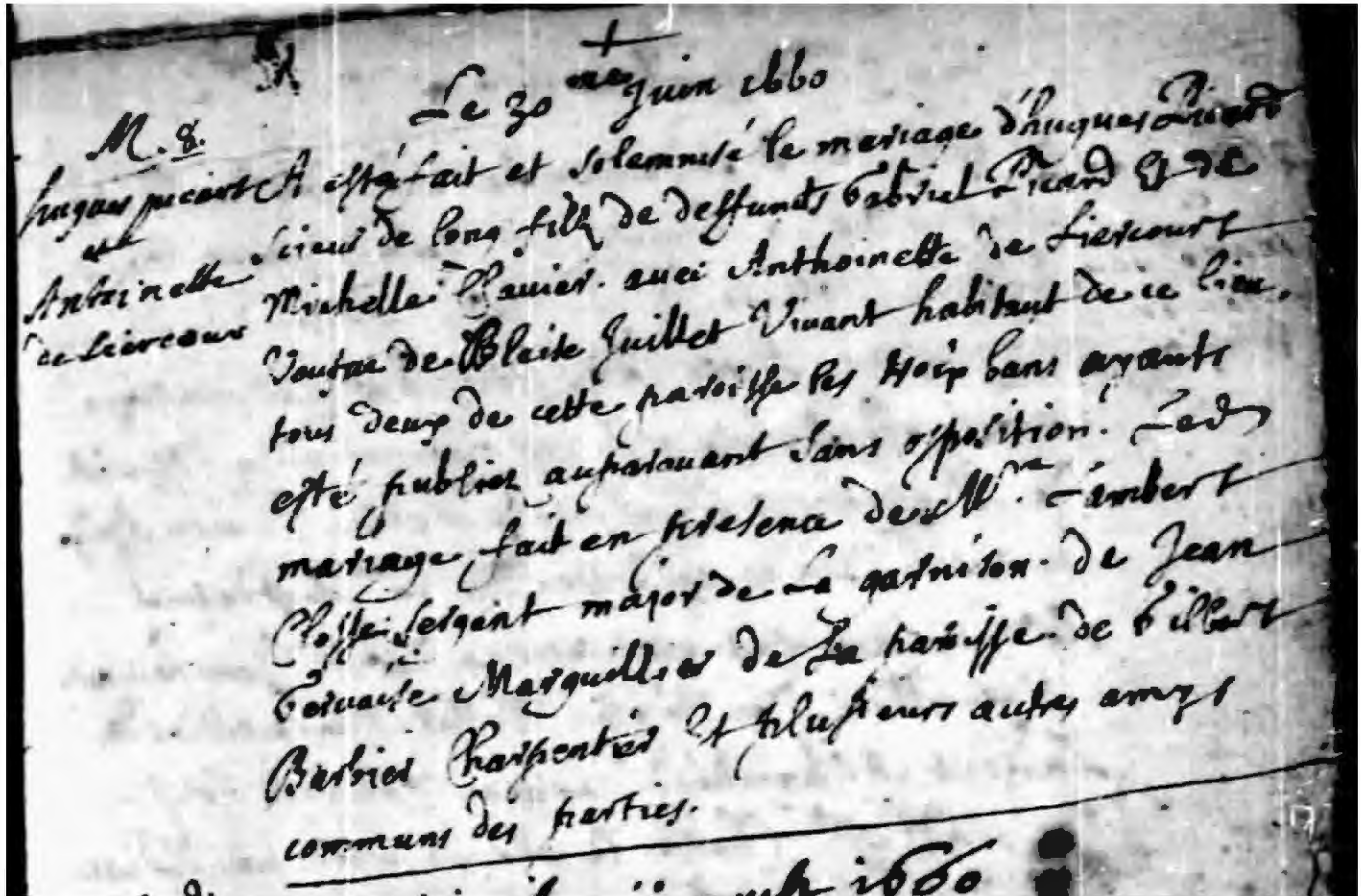 Le 30 me Juin 1660
M. 8.
hugues picart
et
Antoinette
de Liercour
A esté fait et solemnisé le mariage d'hugues Picard
scieur de long filz de deffunts Gabriel Picard Et de
Michelle Clavier. avec Anthoinette de Liercourt
Veufue de Blaise Juillet Vivant habitant de ce lieu,
tous deux de cette paroisse les trois bans ayants
esté publiez auparauant sans opposition. Led
mariage fait en presence de Mre. Lambert
Closse sergent major de La garnison. de Jean
Gervaise Marguillier de La paroisse. de Gilbert
Barbier Charpentier Et plusieurs autres amys
communs des parties.
1660